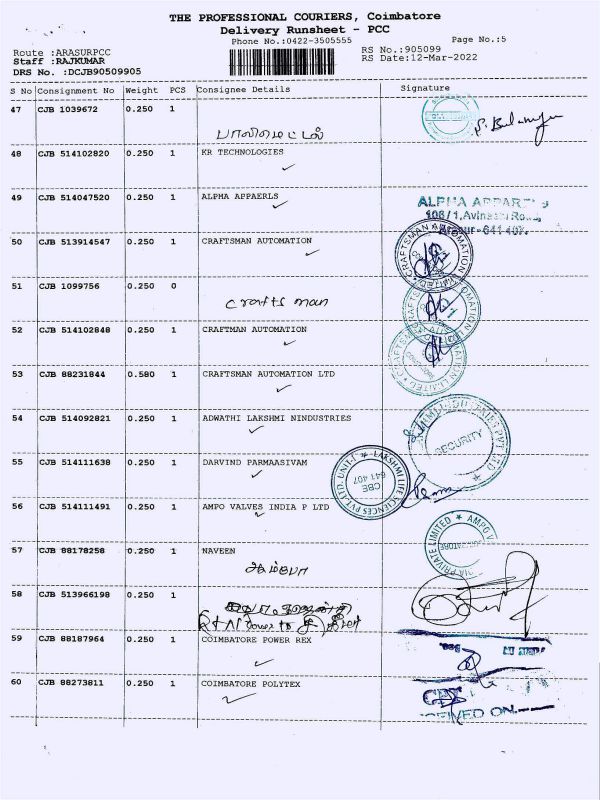 THE PROFESSIONAL COURIERS, Coimbatore
Delivery Runsheet - PCC
Phone No.:0422-3505555
Page No.:5
Route :ARASURPCC
RS No.:905099
Staff :RAJKUMAR
RS Date:12-Mar-2022
DRS No. :DCJB90509905
S No Consignment No Weight PCS Consignee Details Signature
47 CJB 1039672 0.250 1
பாலிமெட்டல்
48 CJB 514102820 0.250 1 KR TECHNOLOGIES
49 CJB 514047520 0.250 1 ALPHA APPAERLS
ALPHA
108/1, Avinashi Road,
641 407.
50 CJB 513914547 0.250 1 CRAFTSMAN AUTOMATION
CRAFTSMAN AUTOMATION
51 CJB 1099756 0.250 0
Craftsman
52 CJB 514102848 0.250 1 CRAFTMAN AUTOMATION
CRAFTSMAN AUTOMATION LIMITED
53 CJB 88231844 0.580 1 CRAFTSMAN AUTOMATION LTD
54 CJB 514092821 0.250 1 ADWATHI LAKSHMI NINDUSTRIES
SECURITY
55 CJB 514111638 0.250 1 DARVIND PARMAASIVAM
LAKSHMI LIFE SCIENCES PVT LTD, UNIT-I
CBE
641 407
56 CJB 514111491 0.250 1 AMPO VALVES INDIA P LTD
AMPO
PRIVATE LIMITED
57 CJB 88178258 0.250 1 NAVEEN
58 CJB 513966198 0.250 1
59 CJB 88187964 0.250 1 COIMBATORE POWER REX
60 CJB 88273811 0.250 1 COIMBATORE POLYTEX
ON